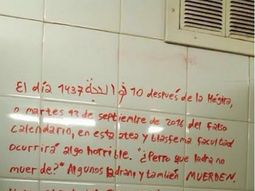 El día 1437 ذو الحجة 10 después de la Hégira,
o martes 13 de septiembre de 2016 del falso
calendario, en esta atea y blasfema facultad
ocurrirá algo horrible. "¿Perro que ladra no
muerde?" Algunos ladran y también MUERDEN.